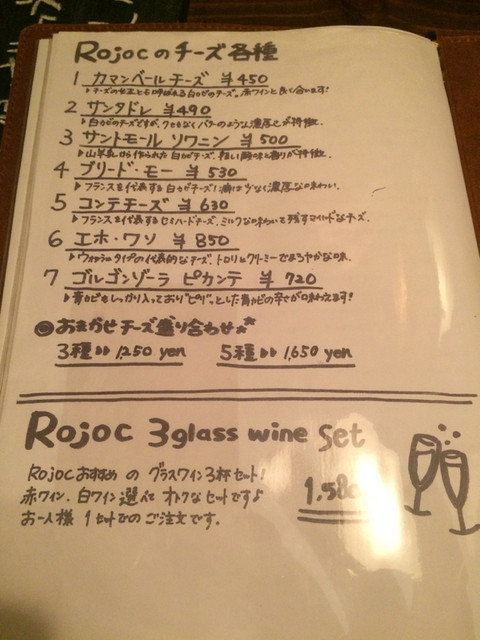 Rojocのチーズ各種
1 カマンベールチーズ ¥450
▶チーズの女王とも呼ばれる白カビのチーズ。赤ワインと良く合います!
2 サンタドレ ¥490
▶白カビのチーズですが、クセもなくバターのような濃厚さが特徴。
3 サントモール ソワニン ¥500
▶山羊乳から作られた白カビチーズ。軽い酸味と香りが特徴。
4 ブリード・モー ¥530
▶フランスを代表する白カビチーズ!満は少なく濃厚な味わい。
5 コンテチーズ ¥630
▶フランスを代表するセミハードチーズ。ミルクな味わいを残すマイルドなチーズ。
6 エホ・ワソ ¥850
▶ウォッシュタイプの代表的なチーズ。トロリとクリーミーでまろやかな味。
7 ゴルゴンゾーラ ピカンテ ¥720
▶青カビもしっかり入っており"ピリッ"とした青カビの辛さが味わえます!
◎おまかせチーズ盛り合わせ
3種▶▶1,250 yen 5種▶▶1,650 yen
Rojoc 3glass wine set
Rojocおすすめの グラスワイン3杯セット!
赤ワイン、白ワイン選んで オトクなセットです♪
お一人様 1セットでのご注文です。
1,580